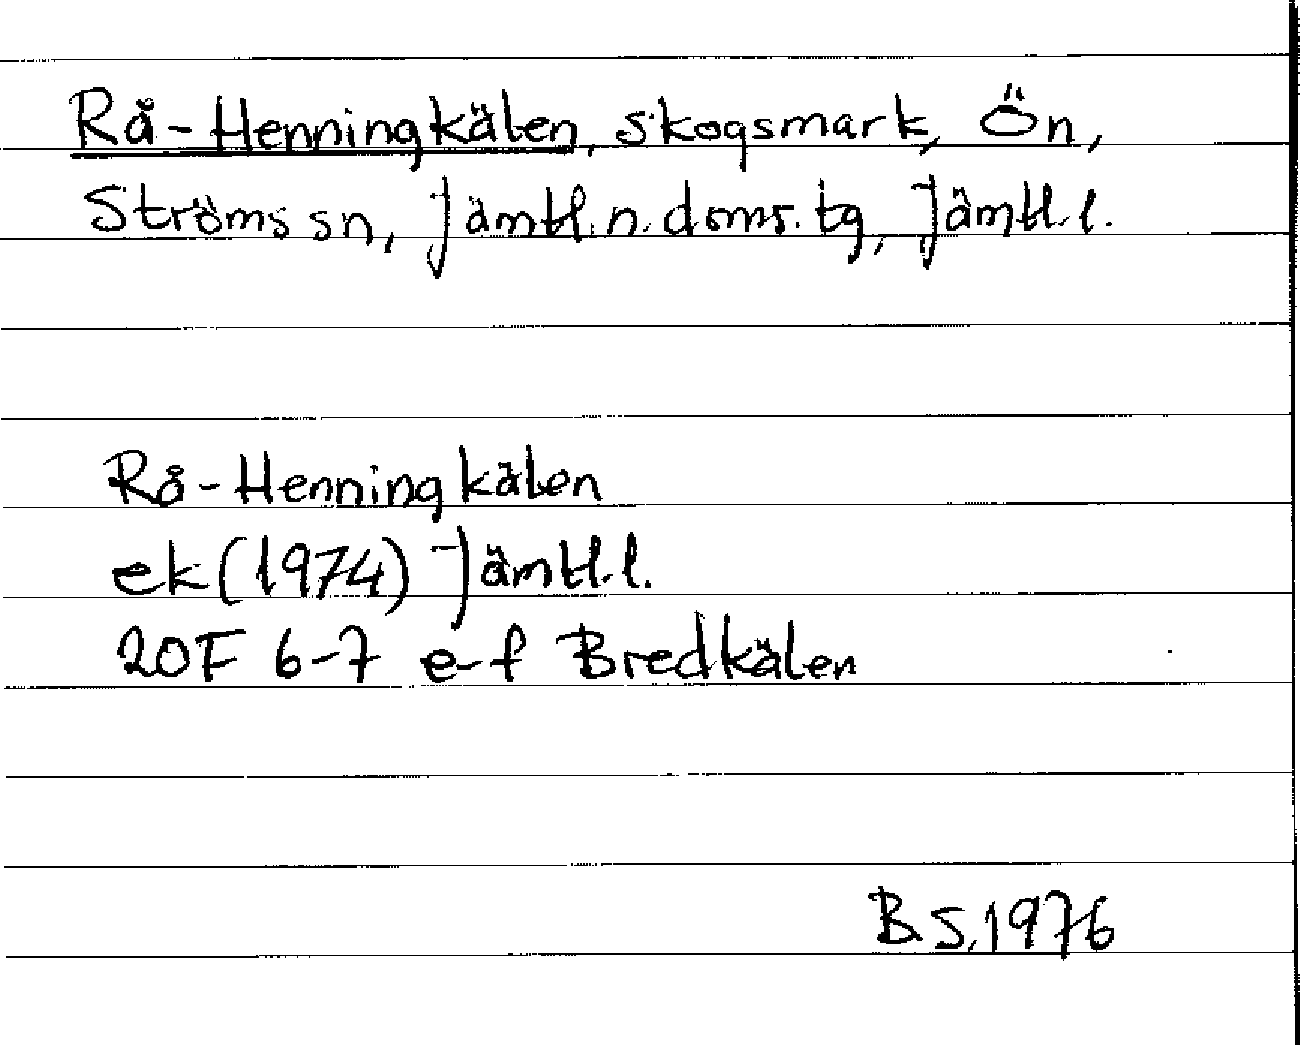 Rå-Henningkälen, skogsmark, Ön,
Ströms sn, Jämtl. n. doms. tg, Jämtl. l.
Rå-Henningkälen
ek (1974) Jämtl. l.
20F 6-7 e-f Bredkälen
B S, 1976